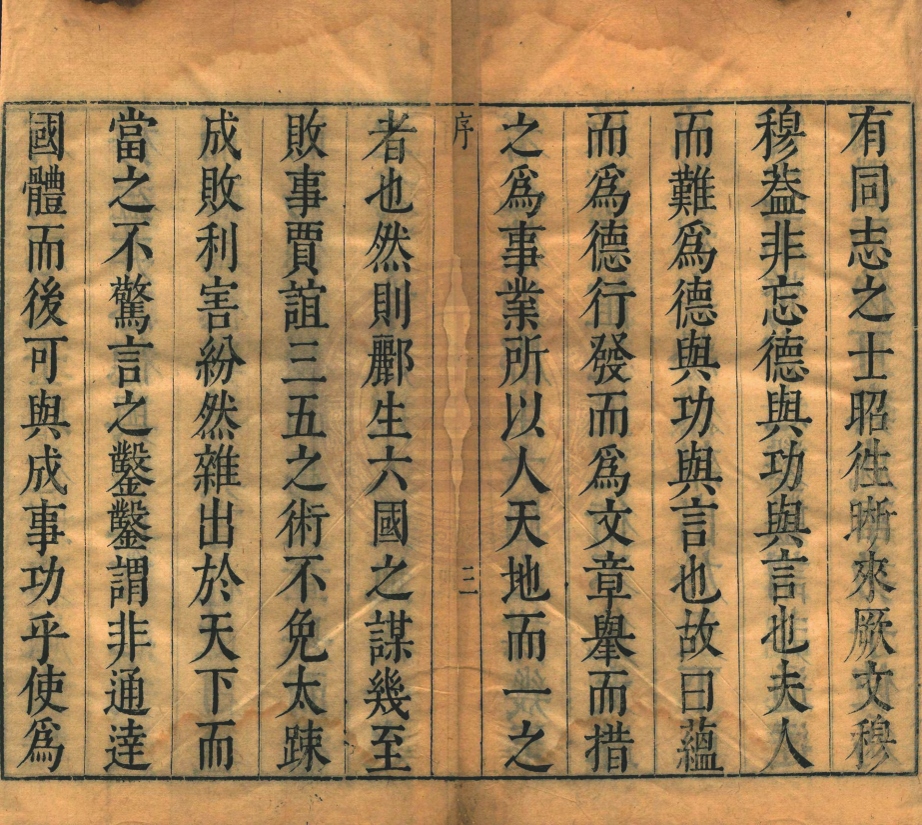 有同志之士昭徃晣來厥文穆
穆葢非忘德與功與言也夫人
而難爲德與功與言也故曰蘊
而爲德行發而爲文章舉而措
之爲事業所以人天地而一之
序 三
者也然則酈生六國之謀幾至
敗事賈誼三五之術不免太踈
成敗利害紛然雜出於天下而
當之不驚言之鑿鑿謂非通逹
國體而後可與成事功乎使爲